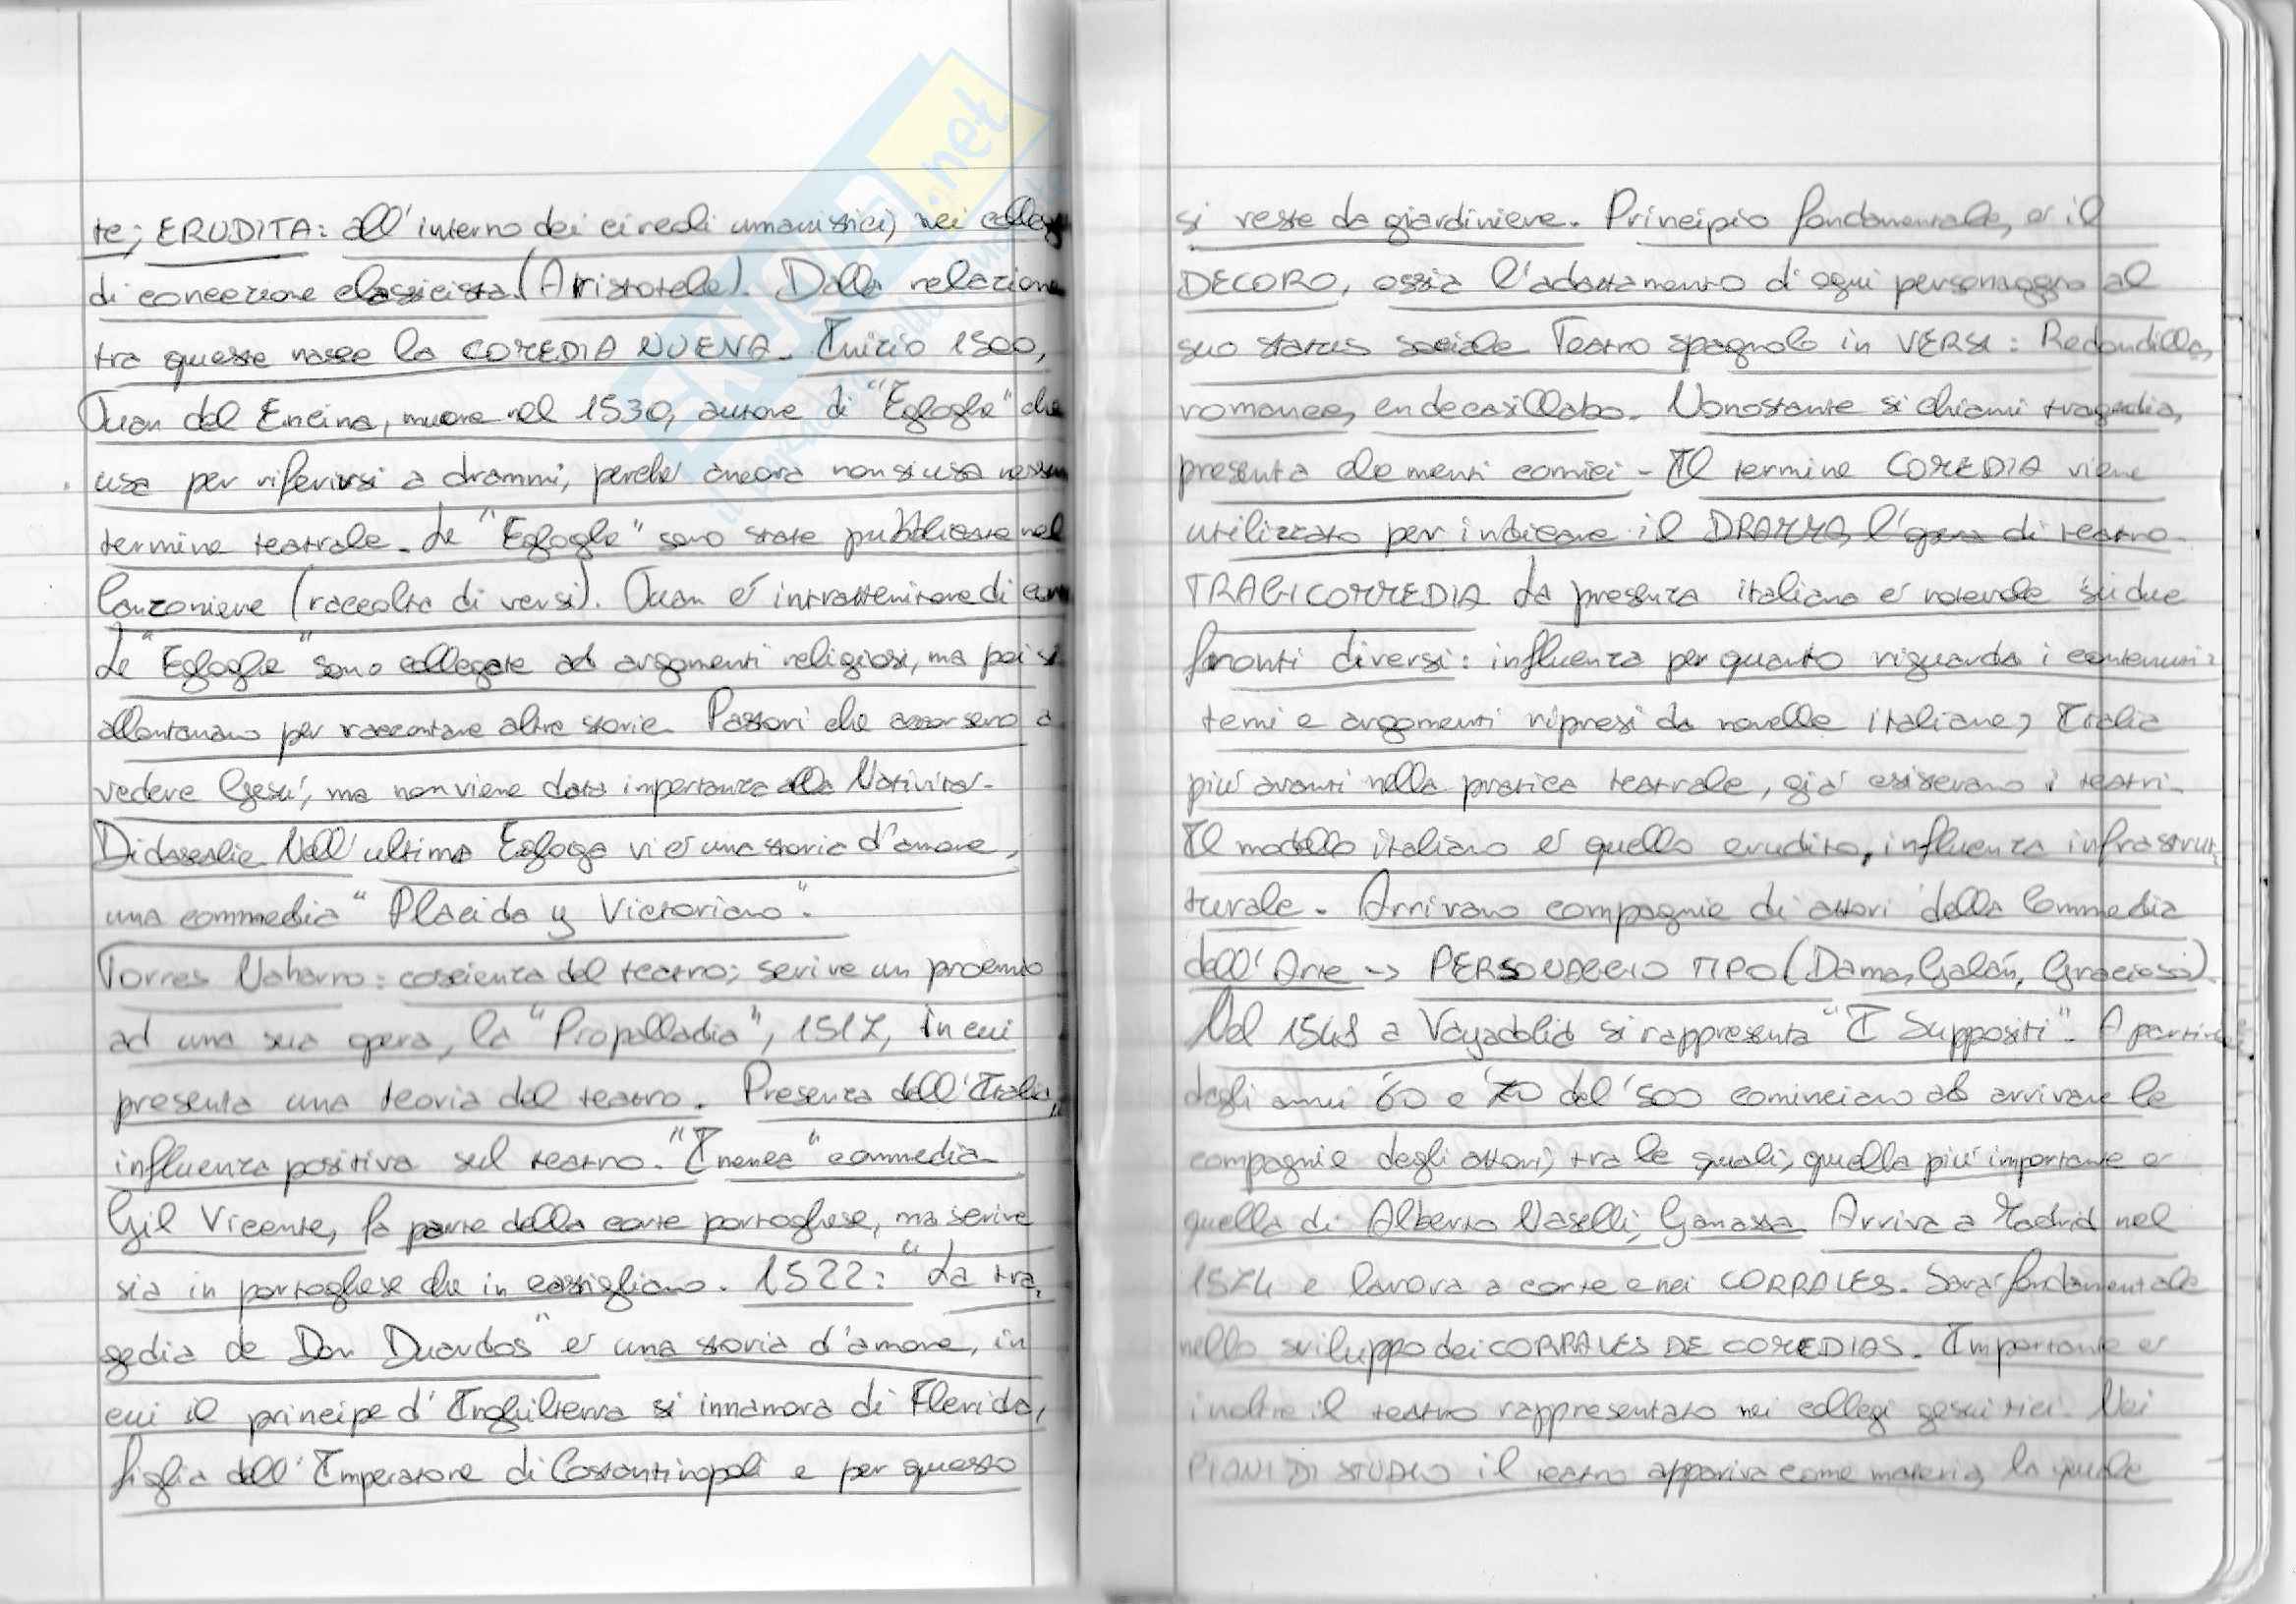 te; ERUDITA: all'interno dei circoli umanistici, nei colleg
di concezione classicista (Aristotele). Dalla relazione
tra queste nasce la COMEDIA NUEVA. Inizio 1500,
Juan del Encina, muore nel 1530, autore di "Egloghe" che
usa per riferirsi a drammi, perché ancora non si usa nessun
termine teatrale. Le "Egloghe" sono state pubblicate nel
Canzoniere (raccolta di versi). Juan é intrattenitore di
Le "Egloghe" sono collegate ad argomenti religiosi, ma poi si
allontanano per raccontare altre storie. Pastori che accorsero a
vedere Gesú, ma non viene data importanza alla Nativitá.
Didascalie. Nell'ultima Egloga vi é una storia d'amore,
una commedia "Placida y Victoriano".
Torres Naharro: coscienza del teatro; scrive un proemio
ad una sua opera, la "Propalladia", 1517, in cui
presenta una teoria del teatro. Presenza dell'Italia,
influenza positiva sul teatro. "Imenea" commedia
Gil Vicente, fa parte della corte portoghese, ma scrive
sia in portoghese che in castigliano. 1522: "La tra,
gedia de Don Duardos" é una storia d'amore, in
cui il principe d'Inghilterra si innamora di Flerida,
figlia dell'Imperatore di Costantinopoli e per questo
si veste da giardiniere. Principio fondamentale, é il
DECORO, ossia l'adattamento di ogni personaggio al
suo status sociale. Teatro spagnolo in VERSI: Redondilla,
romance, endecasillabo. Nonostante si chiami tragedia,
presenta elementi comici - Il termine COMEDIA viene
utilizzato per indicare il DRAMMA, l'opera di teatro.
TRAGICOMMEDIA La presenza italiana é notevole su due
fronti diversi: influenza per quanto riguarda i contenuti:
temi e argomenti ripresi da novelle italiane; Italia
piú avanti nella pratica teatrale, giá esistevano i teatri.
Il modello italiano é quello erudito, influenza infrastrut,
turale. Arrivano compagnie di attori della Commedia
dell'Arte -> PERSONAGGIO TIPO (Dama, Galán, Gracioso).
Nel 1548 a Vayadolid si rappresenta "I Suppositi". A partire
degli anni '60 e '70 del '500 cominciano ad arrivare le
compagnie degli attori, tra le quali, quella piú importante é
quella di Alberto Naselli, Ganassa. Arriva a Madrid nel
1574 e lavora a corte e nei CORRALES. Sará fondamentale
nello sviluppo dei CORRALES DE COMEDIAS. Importante é
inoltre il teatro rappresentato nei collegi gesuitici. Nei
PIANI DI STUDIO il teatro appariva come materia, la quale